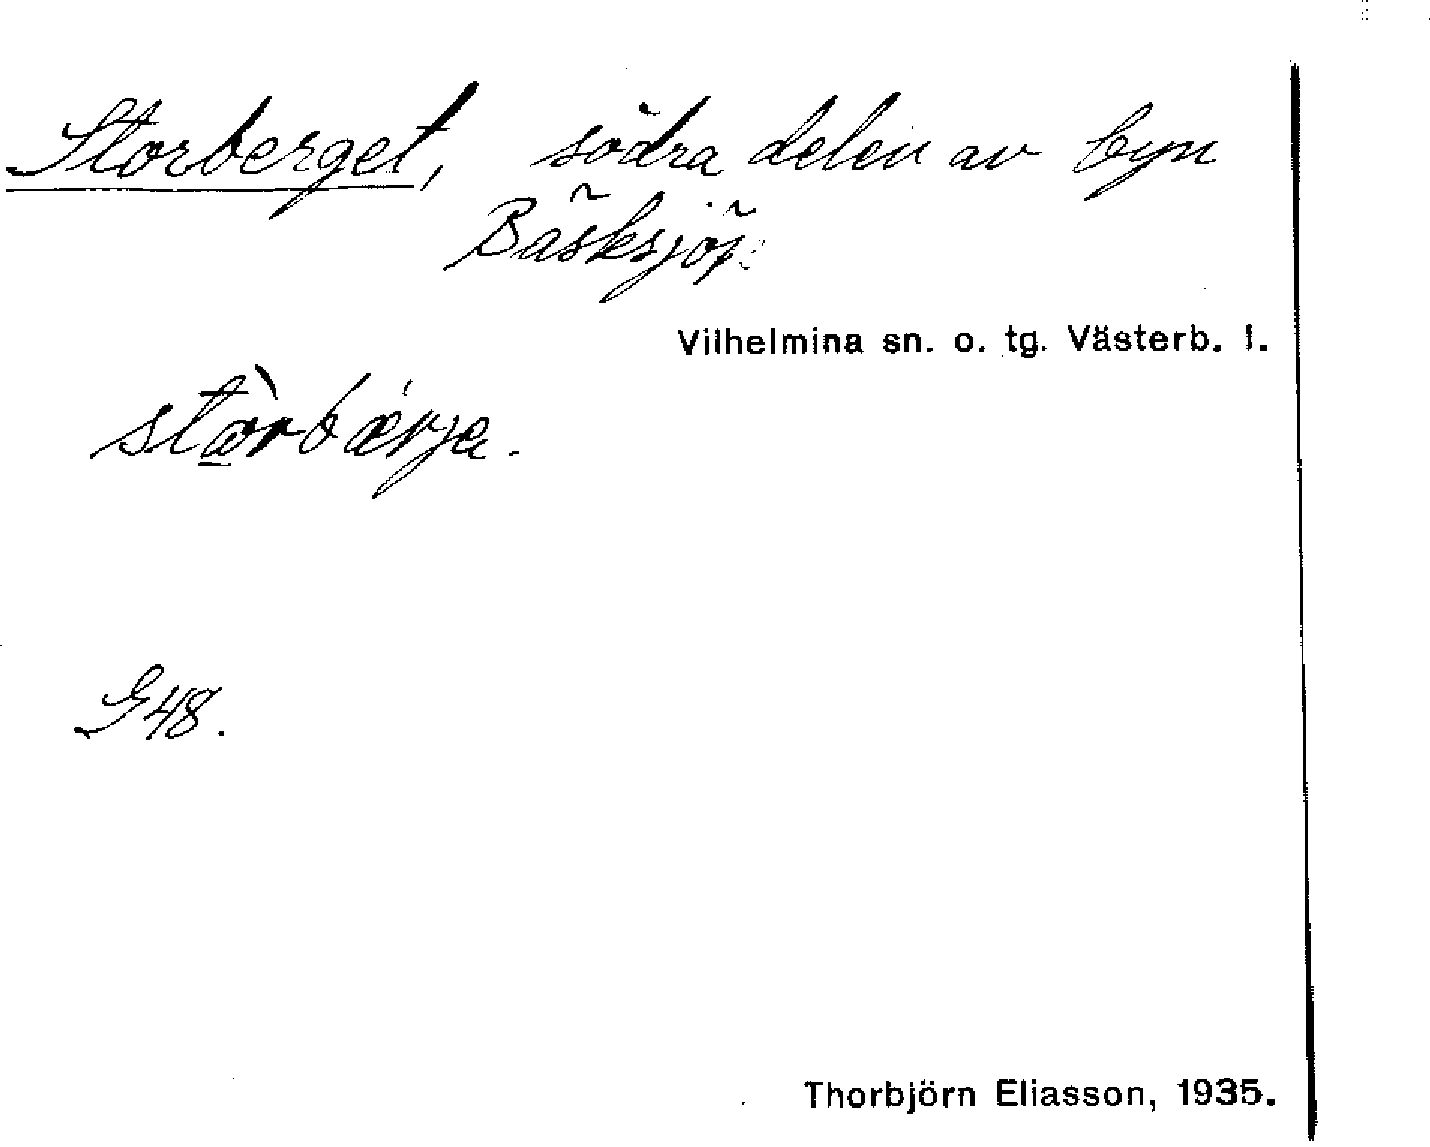 Storberget, södra delen av byn
Bäsksjö.
Vilhelmina sn. o. tg. Västerb. l.
G 48.
Thorbjörn Eliasson, 1935.